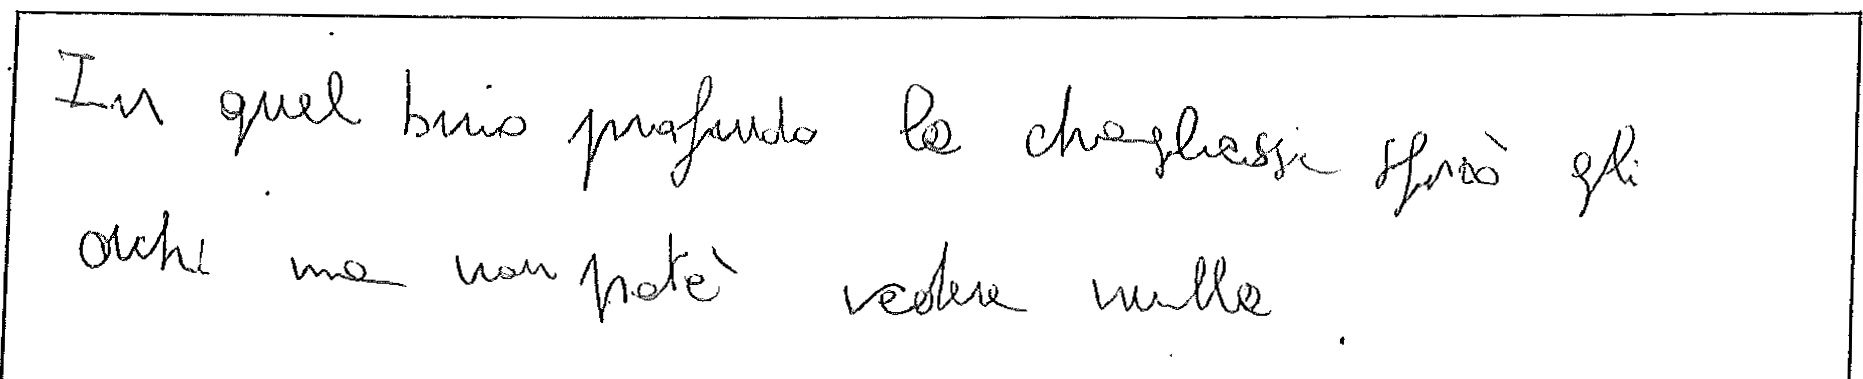 In quel buio profondo la sforzò gli
occhi ma non potè vedere nulla.